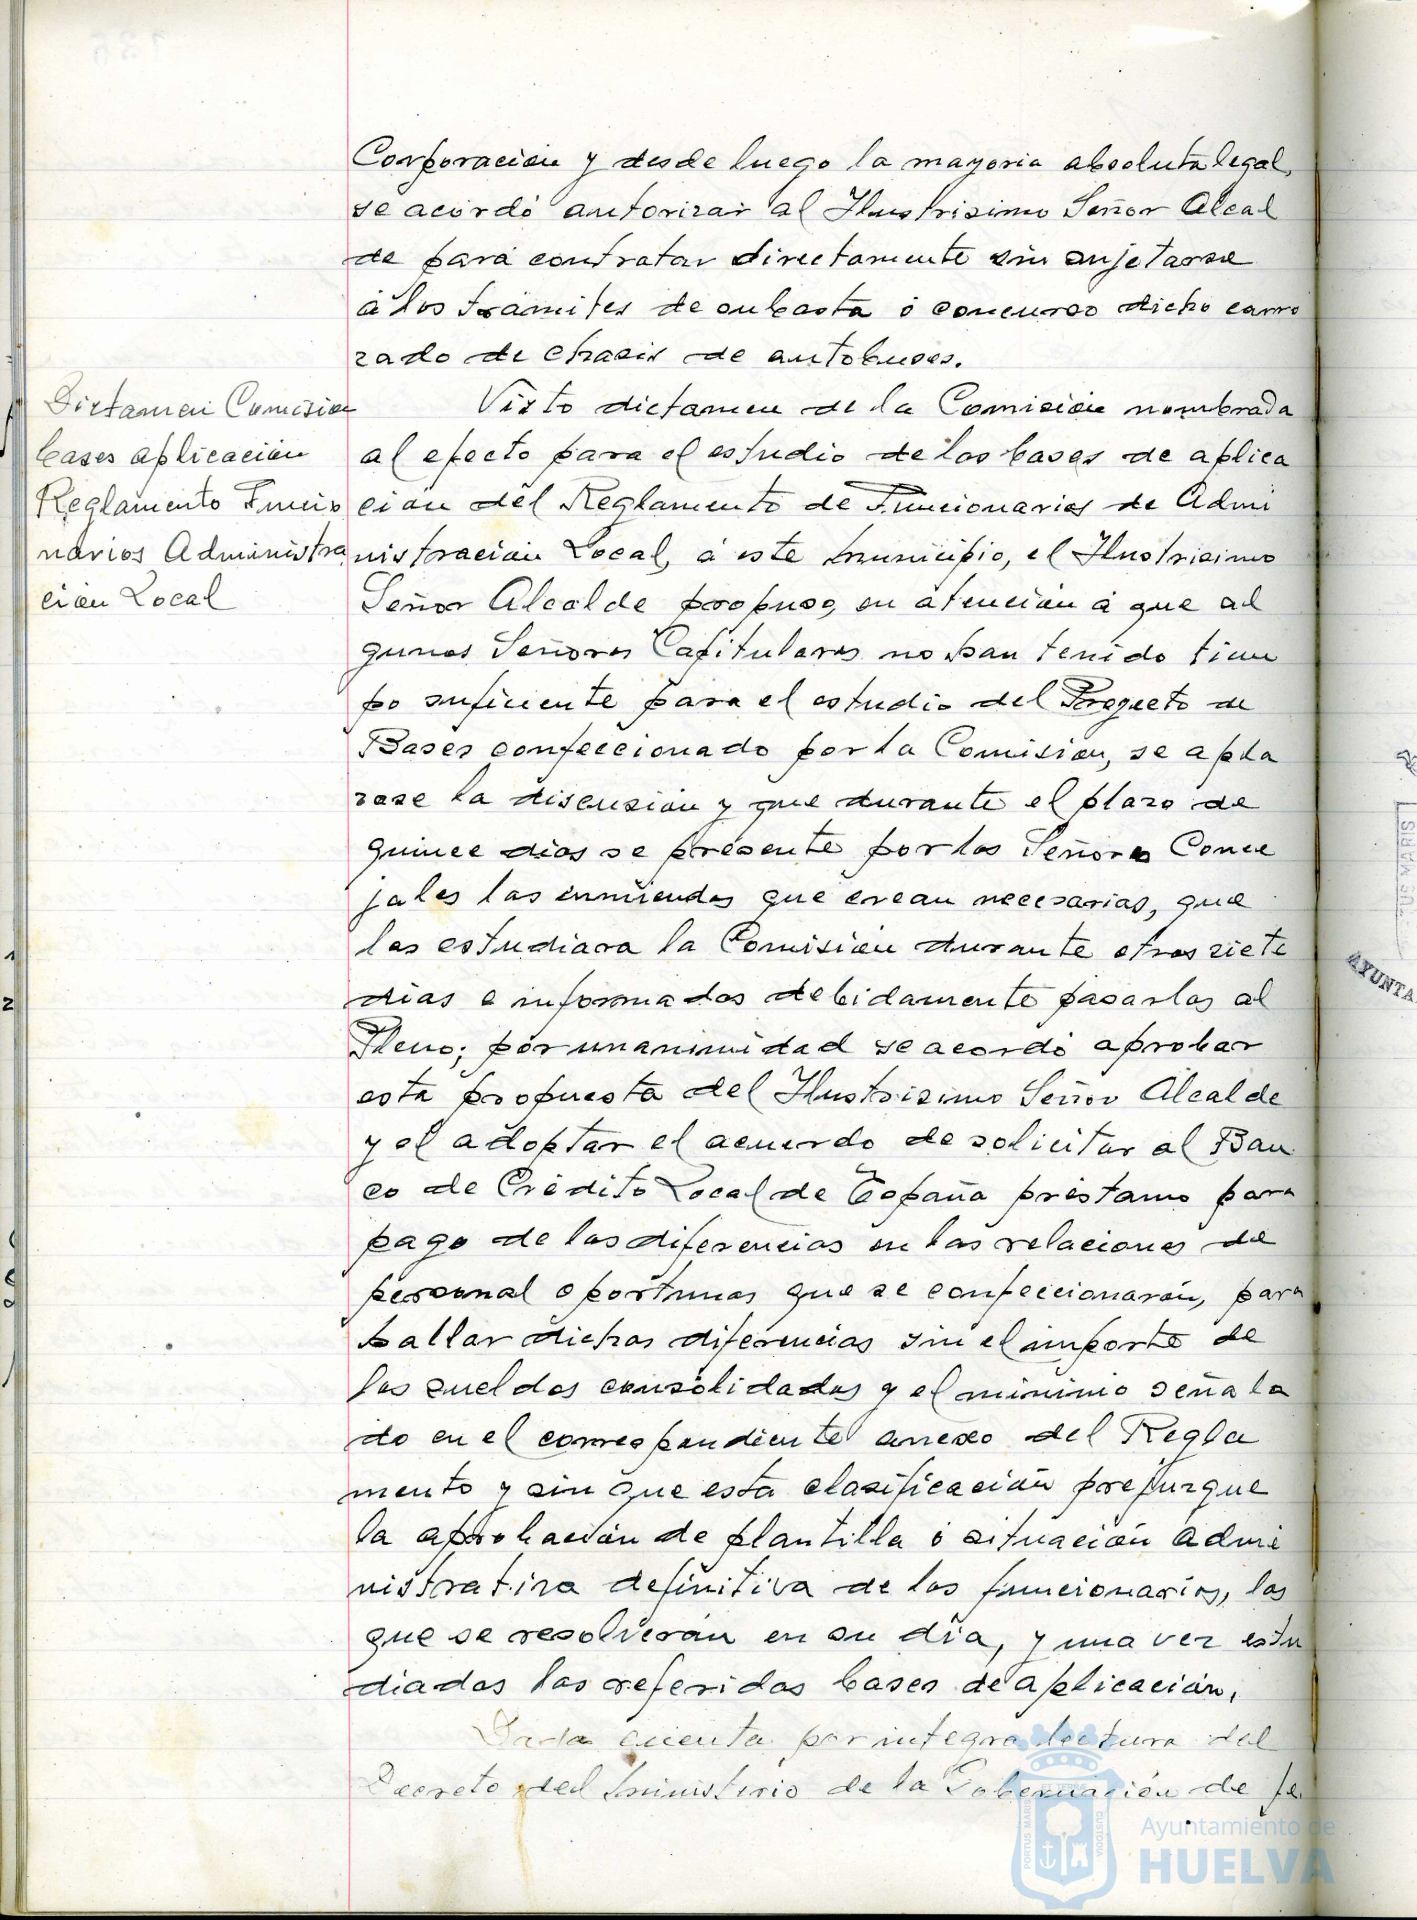 Corporación y desde luego la mayoria absoluta legal,
se acordó autorizar al Ilustrisimo Señor Alcal
de para contratar directamente sin sujetarse
á los trámites de subasta ó concurso dicho carro
zado de chasis de autobuses.
Dictamen Comisión
bases aplicación
Reglamento Funcio
narios Administra
ción Local
Visto dictamen de la Comisión nombrada
al efecto para el estudio de las bases de aplica
ción del Reglamento de Funcionarios de Admi
nistración Local, á este municipio, el Ilustrisimo
Señor Alcalde propuso, en atención á que al
gunos Señores Capitulares no han tenido tiem
po suficiente para el estudio del Proyecto de
Bases confeccionado por la Comisión, se apla
zase la discusión y que durante el plazo de
quince dias se presente por los Señores Conce
jales las enmiendas que crean necesarias, que
las estudiara la Comisión durante otros siete
dias e informadas debidamente pasarlas al
Pleno; por unanimidad se acordó aprobar
esta propuesta del Ilustrisimo Señor Alcalde
y el adoptar el acuerdo de solicitar al Ban
co de Crédito Local de España préstamo para
pago de las diferencias en las relaciones de
personal oportunas que se confeccionarán, para
hallar dichas diferencias sin el importe de
los sueldos consolidados y el minimo señala
do en el correspondiente anexo del Regla
mento y sin que esta clasificación prejuzgue
la aprobación de plantilla ó situación admi
nistrativa definitiva de los funcionarios, las
que se resolverán en su dia, y una vez estu
diadas las referidas bases de aplicación.
Dada cuenta por integra lectura del
Decreto del Ministerio de la Gobernación de fe
1
2
AYUNTA
PORTUS MARIS
CUSTODIA
Ayuntamiento de
HUELVA